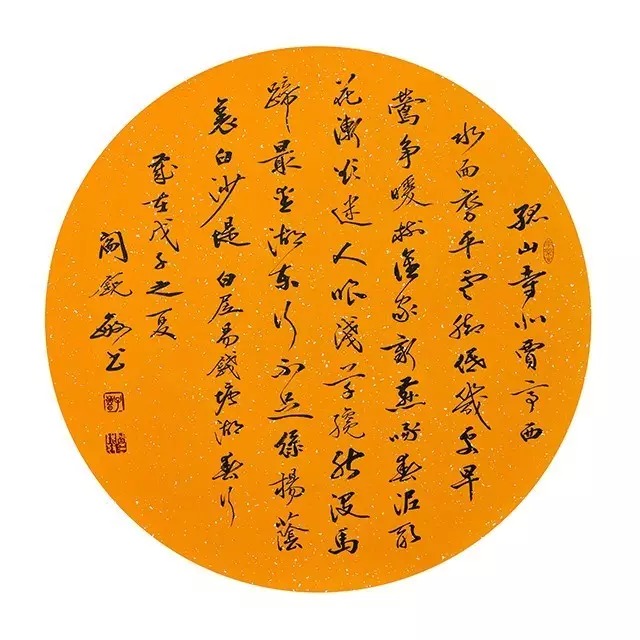 孤山寺北賈亭西
水面初平雲腳低幾處早
鶯爭暖樹誰家新燕啄春泥亂
花漸欲迷人眼淺草纔能沒馬
蹄最愛湖東行不足綠楊蔭
裏白沙堤 白居易錢塘湖春行
歲在戊子之夏
閻銳敏书